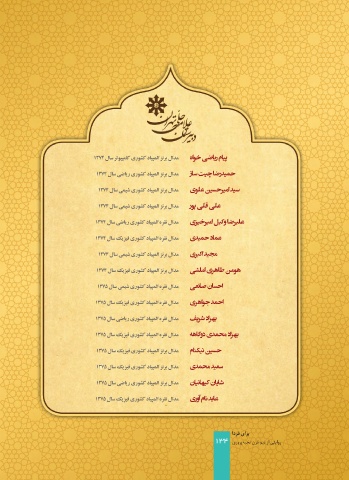 دبیرستان علامه حلی تهران
پیام ریاضی خواه مدال برنز المپیاد کشوری کامپیوتر سال ۱۳۷۴
حمیدرضا چیت ساز مدال برنز المپیاد کشوری ریاضی سال ۱۳۷۴
سید امیرحسین علوی مدال برنز المپیاد کشوری شیمی سال ۱۳۷۴
علی قلی پور مدال برنز المپیاد کشوری شیمی سال ۱۳۷۴
علیرضا وکیل امیرخیزی مدال نقره المپیاد کشوری ریاضی سال ۱۳۷۴
عماد حمیدی مدال نقره المپیاد کشوری فیزیک سال ۱۳۷۴
مجید اکبری مدال برنز المپیاد کشوری شیمی سال ۱۳۷۴
هومن طاهری املشی مدال نقره المپیاد کشوری فیزیک سال ۱۳۷۴
احسان صانعی مدال نقره المپیاد کشوری شیمی سال ۱۳۷۵
احمد جواهری مدال نقره المپیاد کشوری فیزیک سال ۱۳۷۵
بهراد شریف مدال نقره المپیاد کشوری ریاضی سال ۱۳۷۵
بهراد محمدی دزگاهه مدال نقره المپیاد کشوری فیزیک سال ۱۳۷۵
حسین نیکنام مدال برنز المپیاد کشوری فیزیک سال ۱۳۷۵
سعید محمدی مدال برنز المپیاد کشوری فیزیک سال ۱۳۷۵
شایان کیهانیان مدال برنز المپیاد کشوری ریاضی سال ۱۳۷۵
عابد نام آوری مدال نقره المپیاد کشوری فیزیک سال ۱۳۷۵
برای فردا
۱۳۳